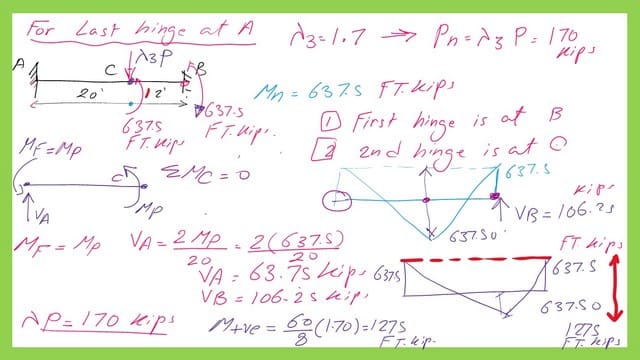 For Last hinge at A
λ3=1.7 → Pn=λ3 P=170 kips
λ3P
A
C
B
20'
12'
637.5 FT.kips
637.5 FT.kip.
Mn=637.5 FT.kips
1 First hinge is at B
2 2nd hinge is at C
MF=MP
C
MP
VA
ΣMC=0
637.5
637.50
kips
VB=106.25
MF=MP VA=2MP/20=2(637.5)/20
VA=63.75 kips
VB=106.25 kips
FT.kips
637.5
637.5
637.50
1275 FT.kips
λP=170 kips
M+ve=60/8(170)=1275 FT.kip.